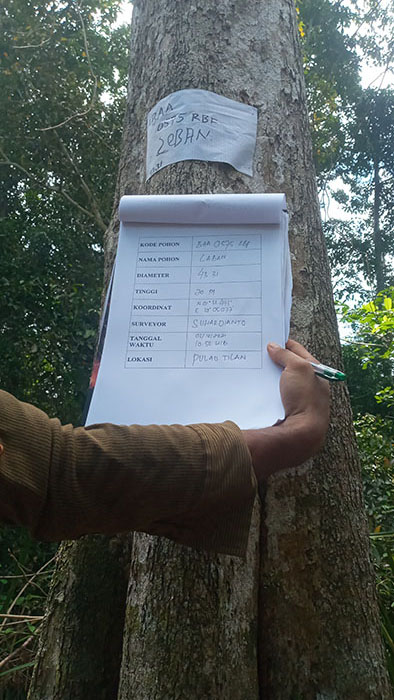 BAA
0575 RBF
LEBAN
KODE POHON BAA 0575
NAMA POHON LABAN
DIAMETER 43 21
TINGGI 20 M
KOORDINAT
SURVEYOR SUHARDIANTO
TANGGAL
WAKTU 10.55 WIB
LOKASI PULAU TILAN